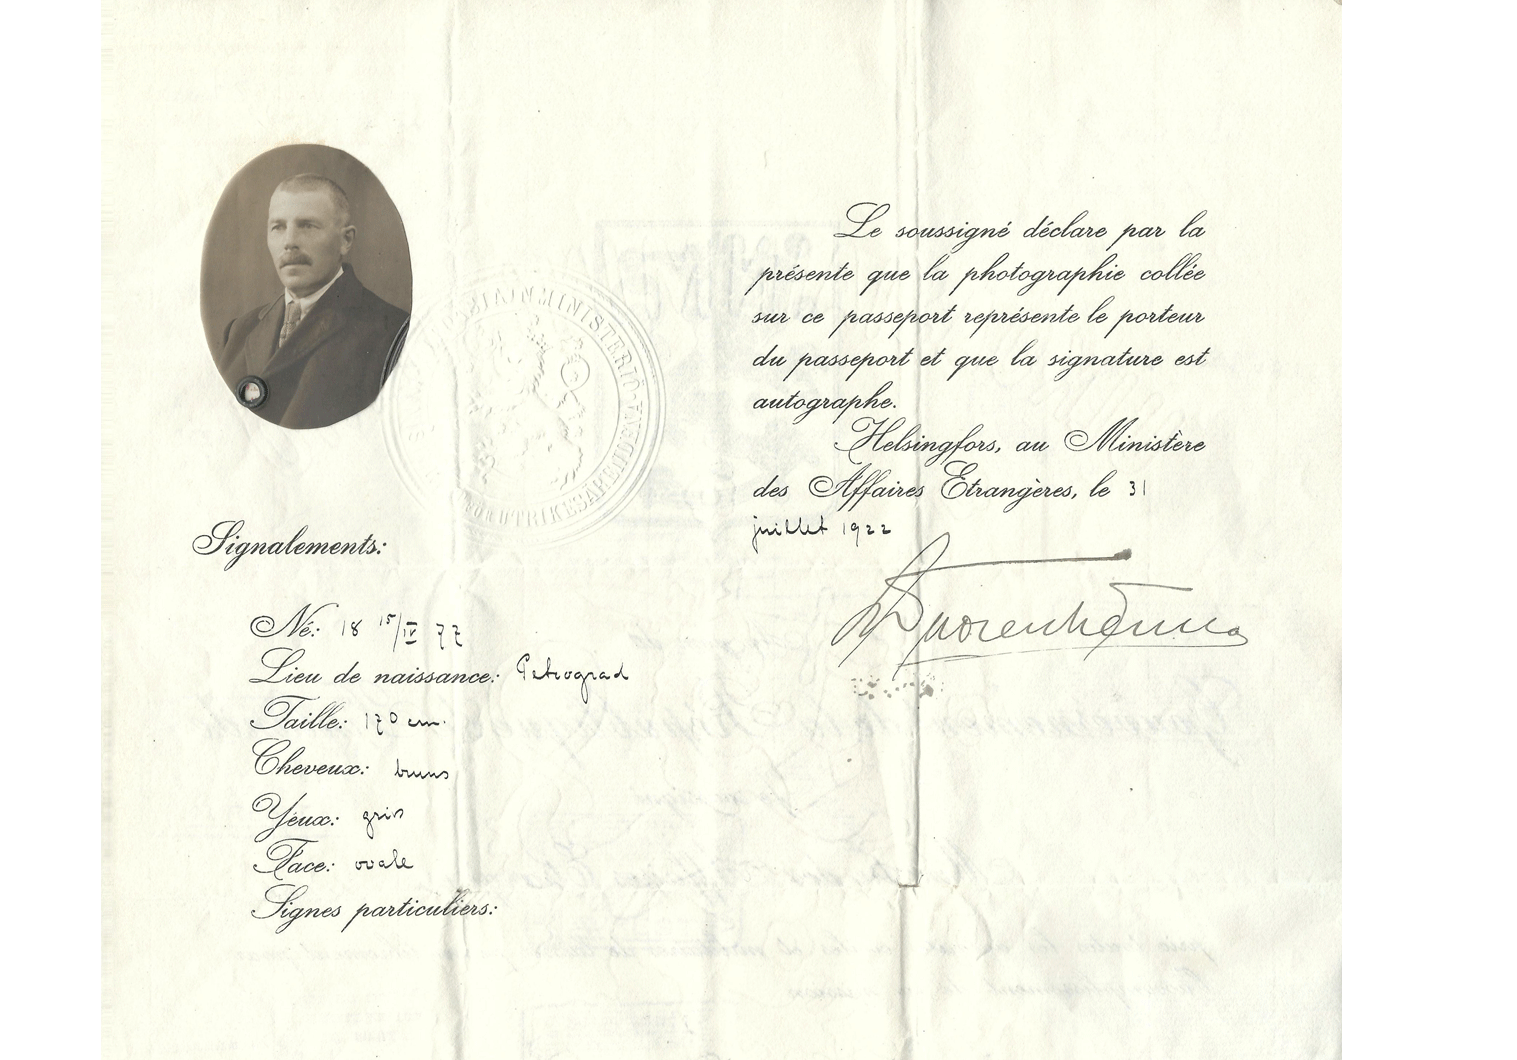 Le soussigné déclare par la
présente que la photographie collée
sur ce passeport représente le porteur
du passeport et que la signature est
autographe.
Helsingfors, au Ministère
des Affaires Etrangères, le 31
juillet 1922
Signalements:
Né: 18 15/IV 77
Lieu de naissance: Petrograd
Taille: 170 cm.
Cheveux: bruns
Yeux: gris
Face: ovale
Signes particuliers: